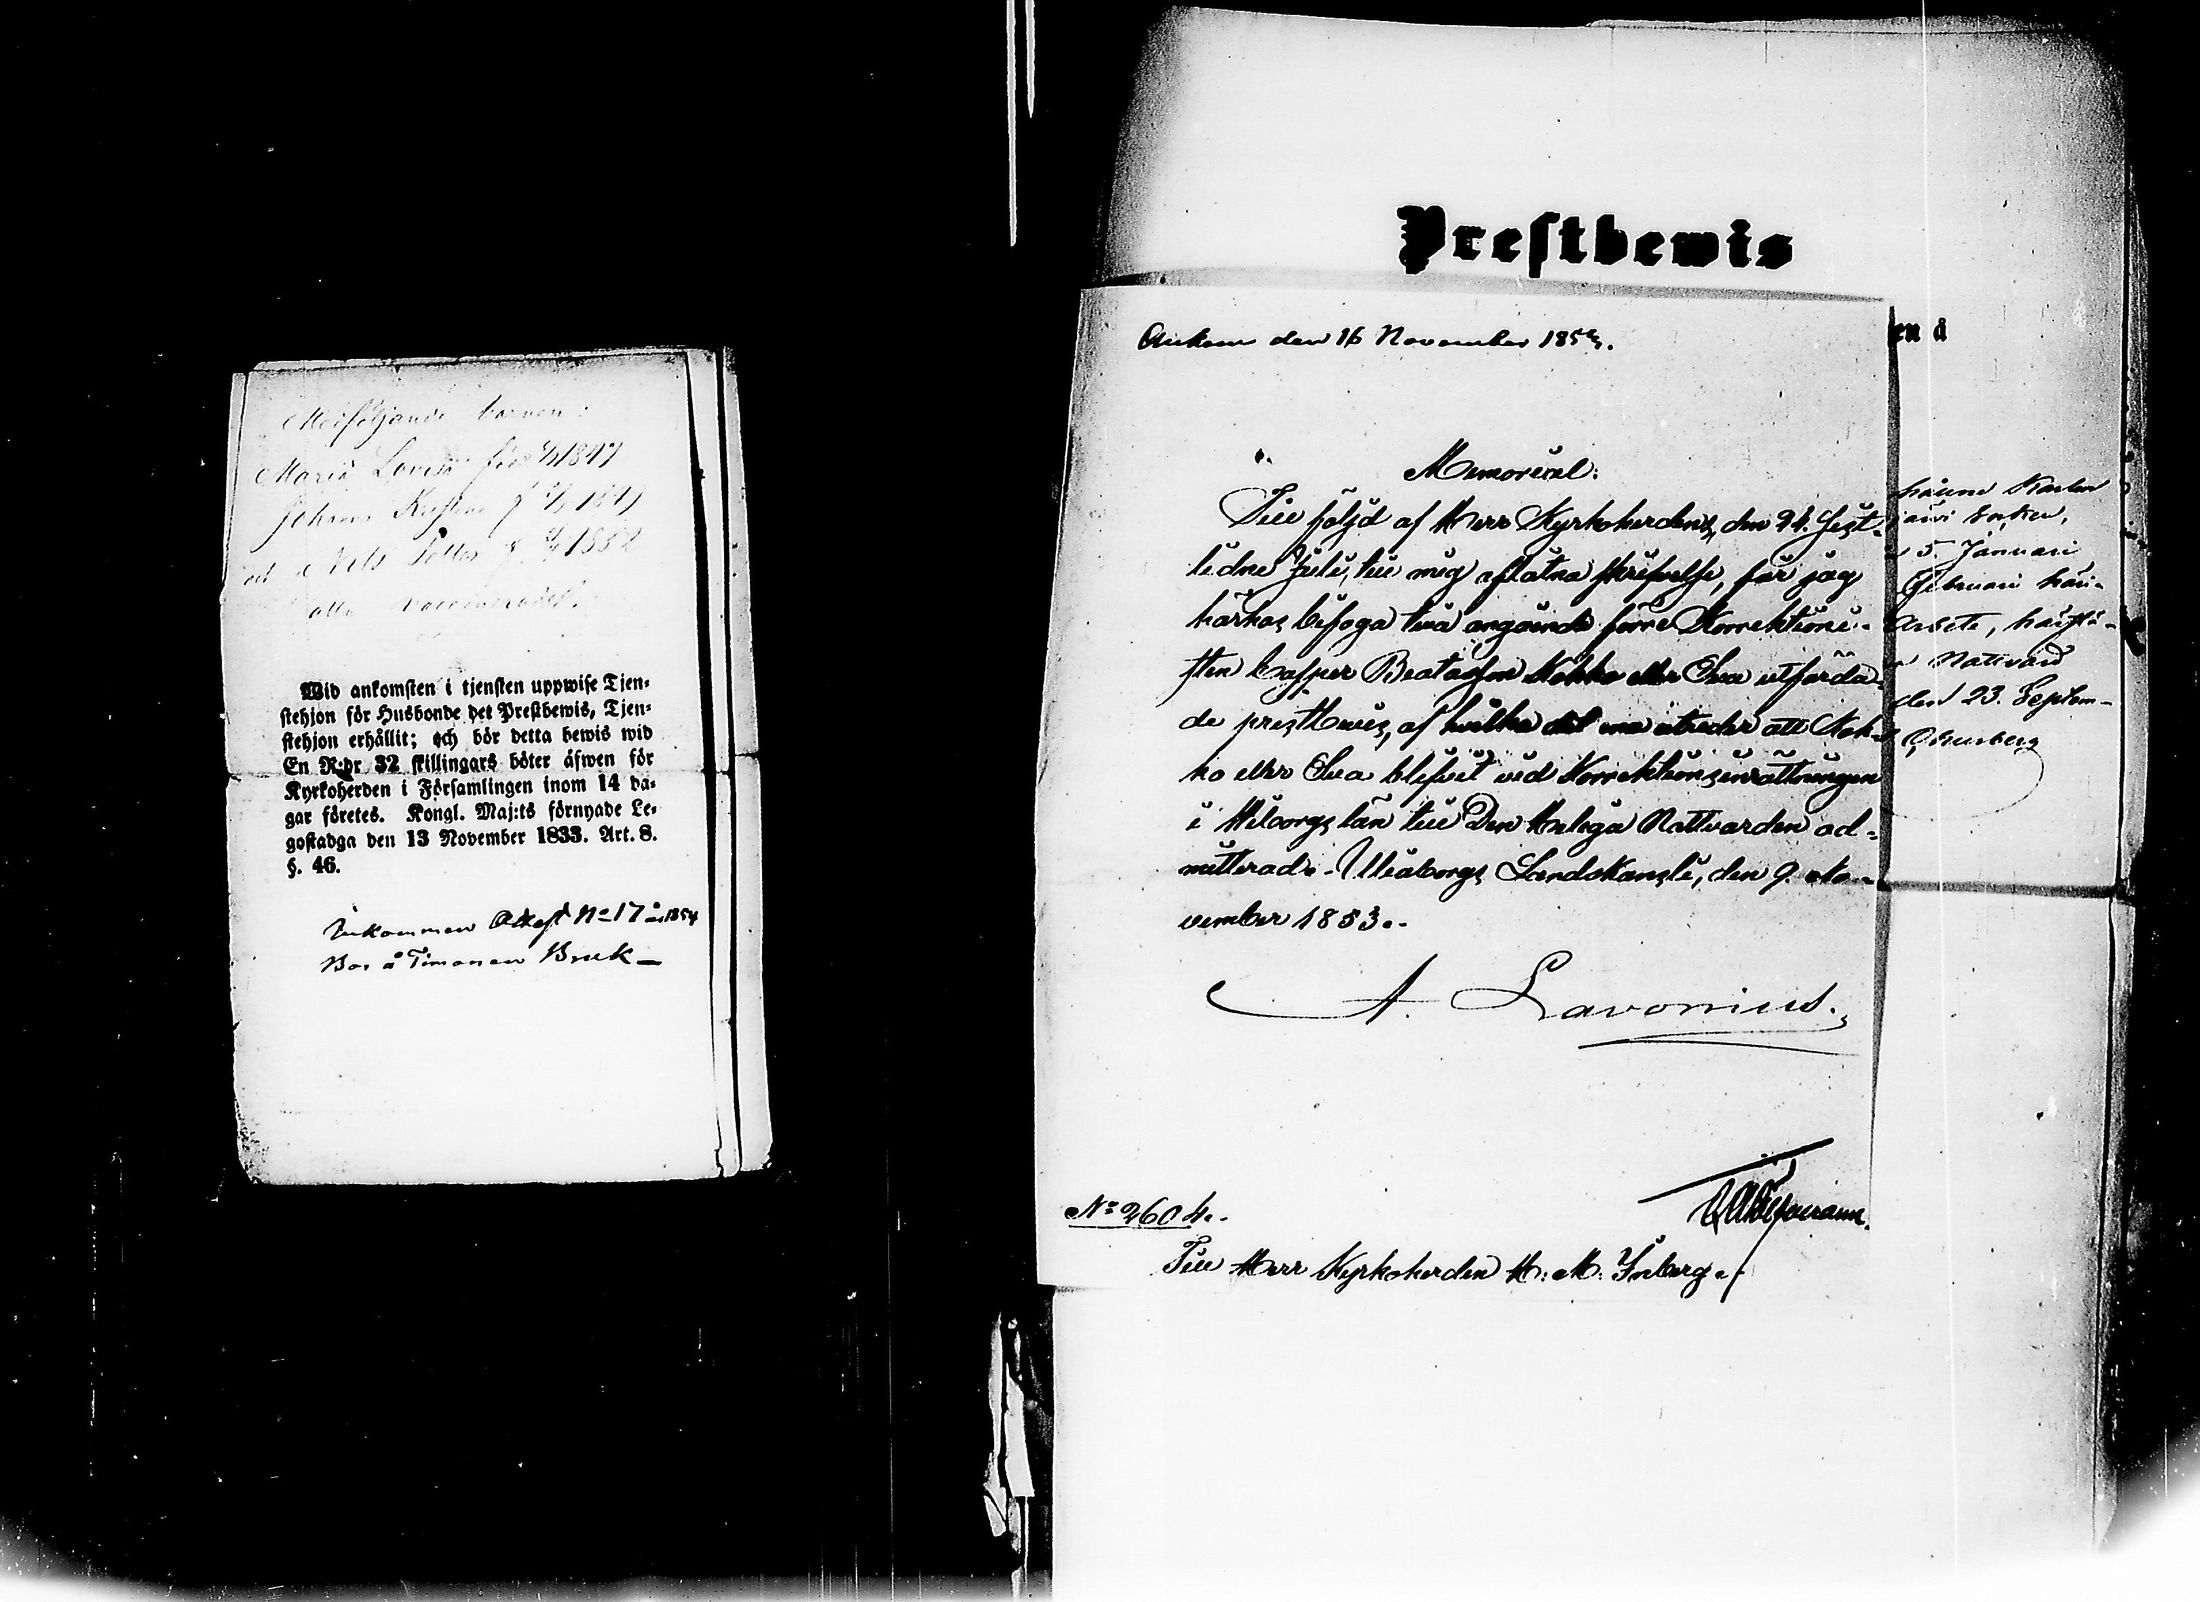 Medföljande barnen:
Maria Lovisa född 1847
Johan Kustaa f. 1849
och Nils Petter f. 1852
alla vaccinerade.
Wid ankomsten i tjensten uppwise Tjen-
stehjon för Husbonde det Prestbewis, Tjen-
stehjon erhållit; och bör detta bewis wid
En R:dr 32 skillingars böter äfwen för
Kyrkoherden i Församlingen inom 14 da-
gar företes. Kongl. Maj:ts förnyade Le-
gostadga den 13 November 1833. Art. 8.
§. 46.
Inkommen Attest No 17 år 1854
Bor å Timonen Bruk
Prestbewis
Ankom den 16 November 1853.
Memorial:
Till följd af Herr Kyrkoherdens, den 24. sist-
lidne Juli, till mig aflåtna skrifvelse, får jag
härhos bifoga två angående förre Korrektioni-
sten Casper Beatasson Kokko eller Sva utfärda-
de prestbevis, af hvilka det ena utvisar att Kok-
ko eller Sva blifvit vid Korrektionsinrättningen
i Wiborgs län till Den Heliga Nattvarden ad-
mitterad. Uleåborgs Landskansli, den 9. No-
vember 1853.
A. Lavonius.
No 2604.
Till Herr Kyrkoherden H. M. Ynberg.
en å
5. Januari
Februari
Arbete,
Nattvard
den 23. Septem-